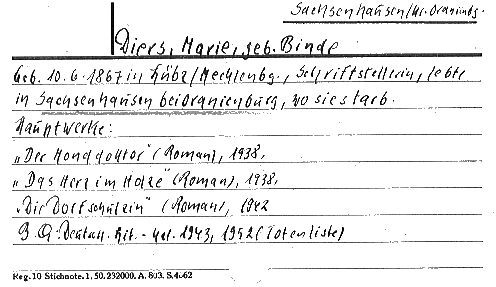 Sachsenhausen/Kr. Oranienbg.
Diers, Marie, geb. Binde
Geb. 10.6.1867 in Lübz/Mecklenbg., Schriftstellerin, lebte
in Sachsenhausen bei Oranienburg, wo sie starb.
Hauptwerke:
„Der Honddoktor" (Roman), 1938,
„Das Herz im Holze" (Roman), 1938,
„Die Dorfschulzin" (Roman), 1942
B. Q.: Deutsch. Lit.-Kal. 1943, 1952 (Totenliste)
Reg. 10 Stichnote. 1, 50. 232000. A. 803. S. 4662